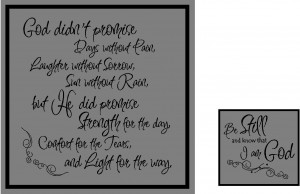 God didn't promise
Days without Pain,
Laughter without Sorrow,
Sun without Rain,
but He did promise
Strength for the day,
Comfort for the Tears,
and Light for the way.
Be Still
and know that
I am God